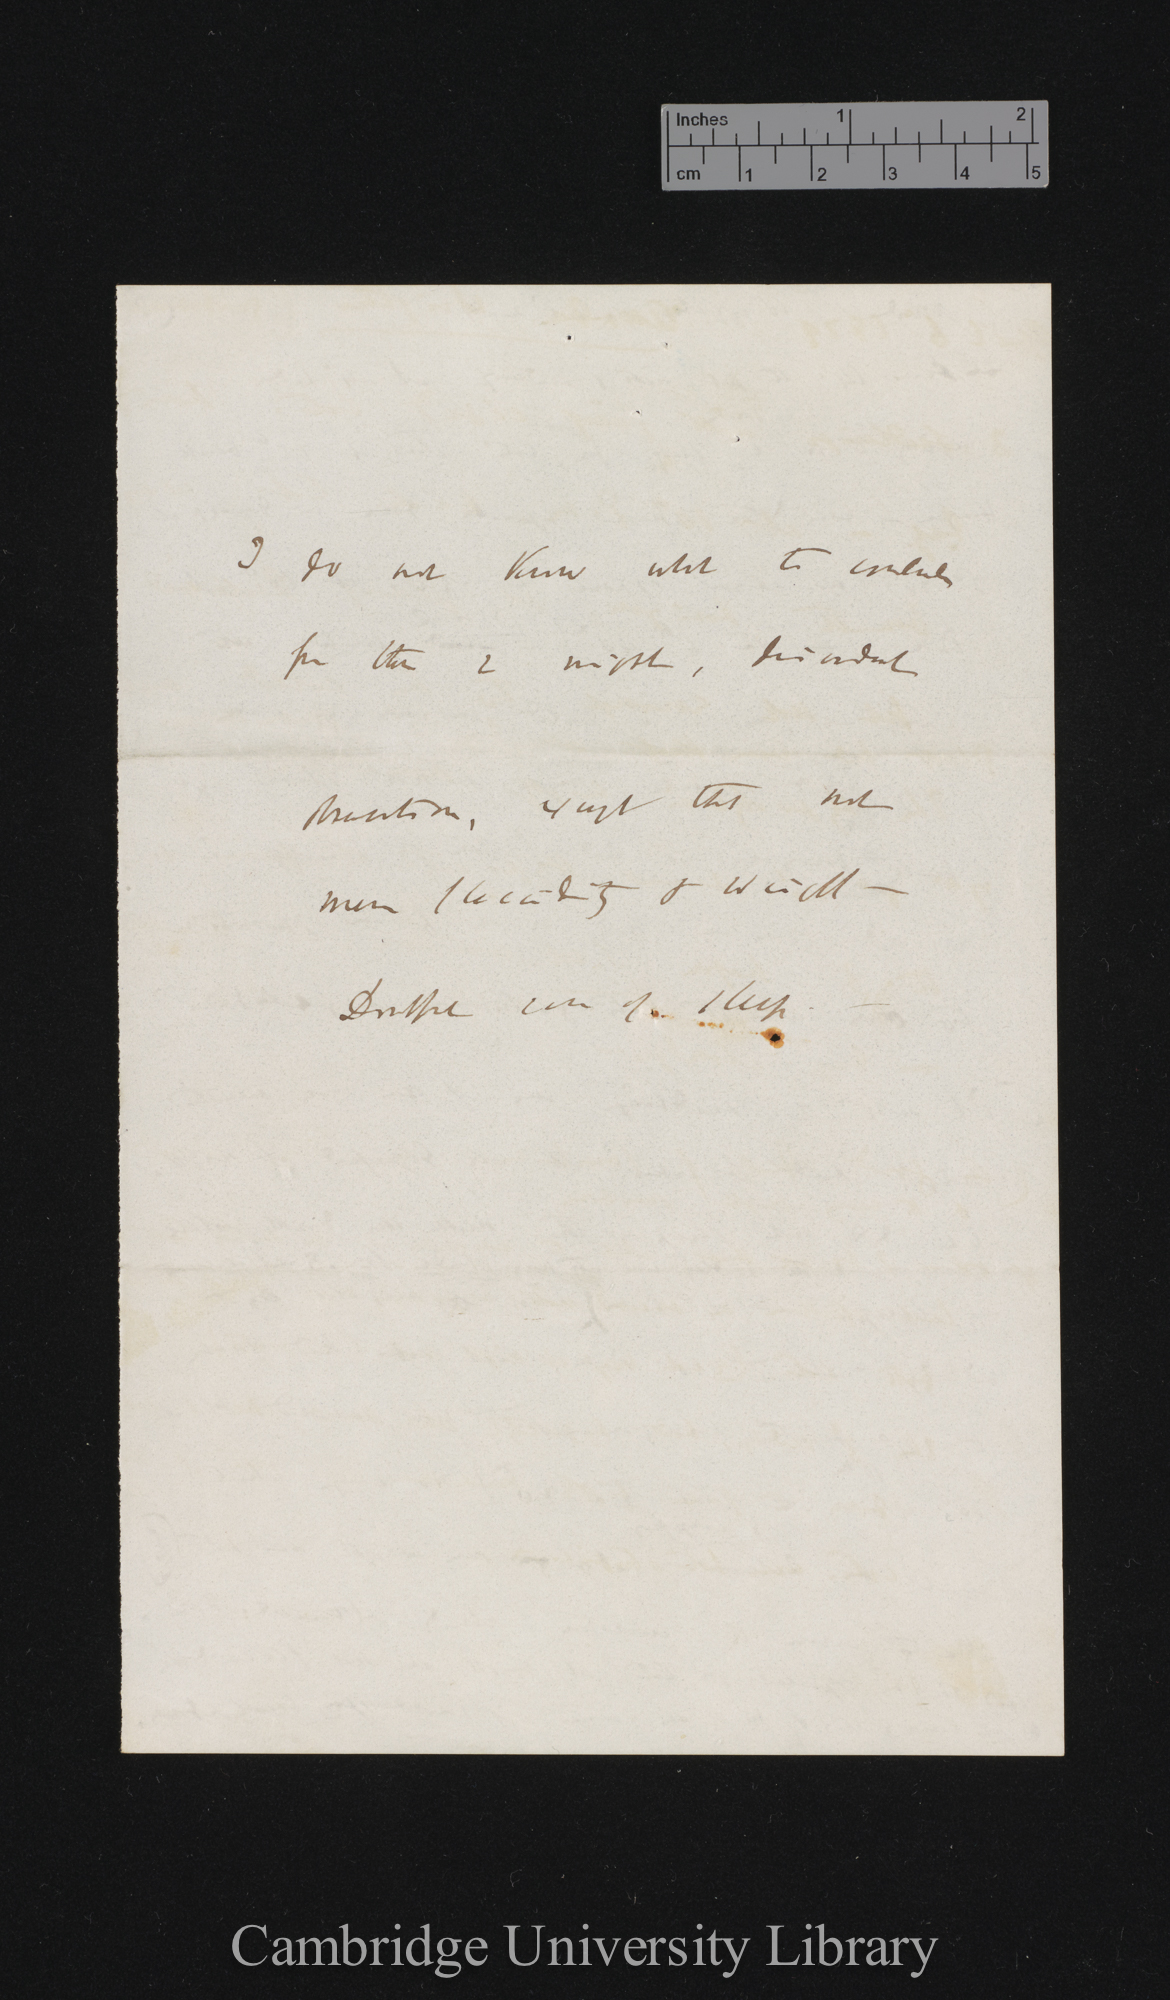 Inches 1 2
cm 1 2 3 4 5
I do not know what to conclude
from these 2 nights, discordant
observations, except that not
mere flaccidity & weight —
Doubtful case of sleep. —
Cambridge University Library